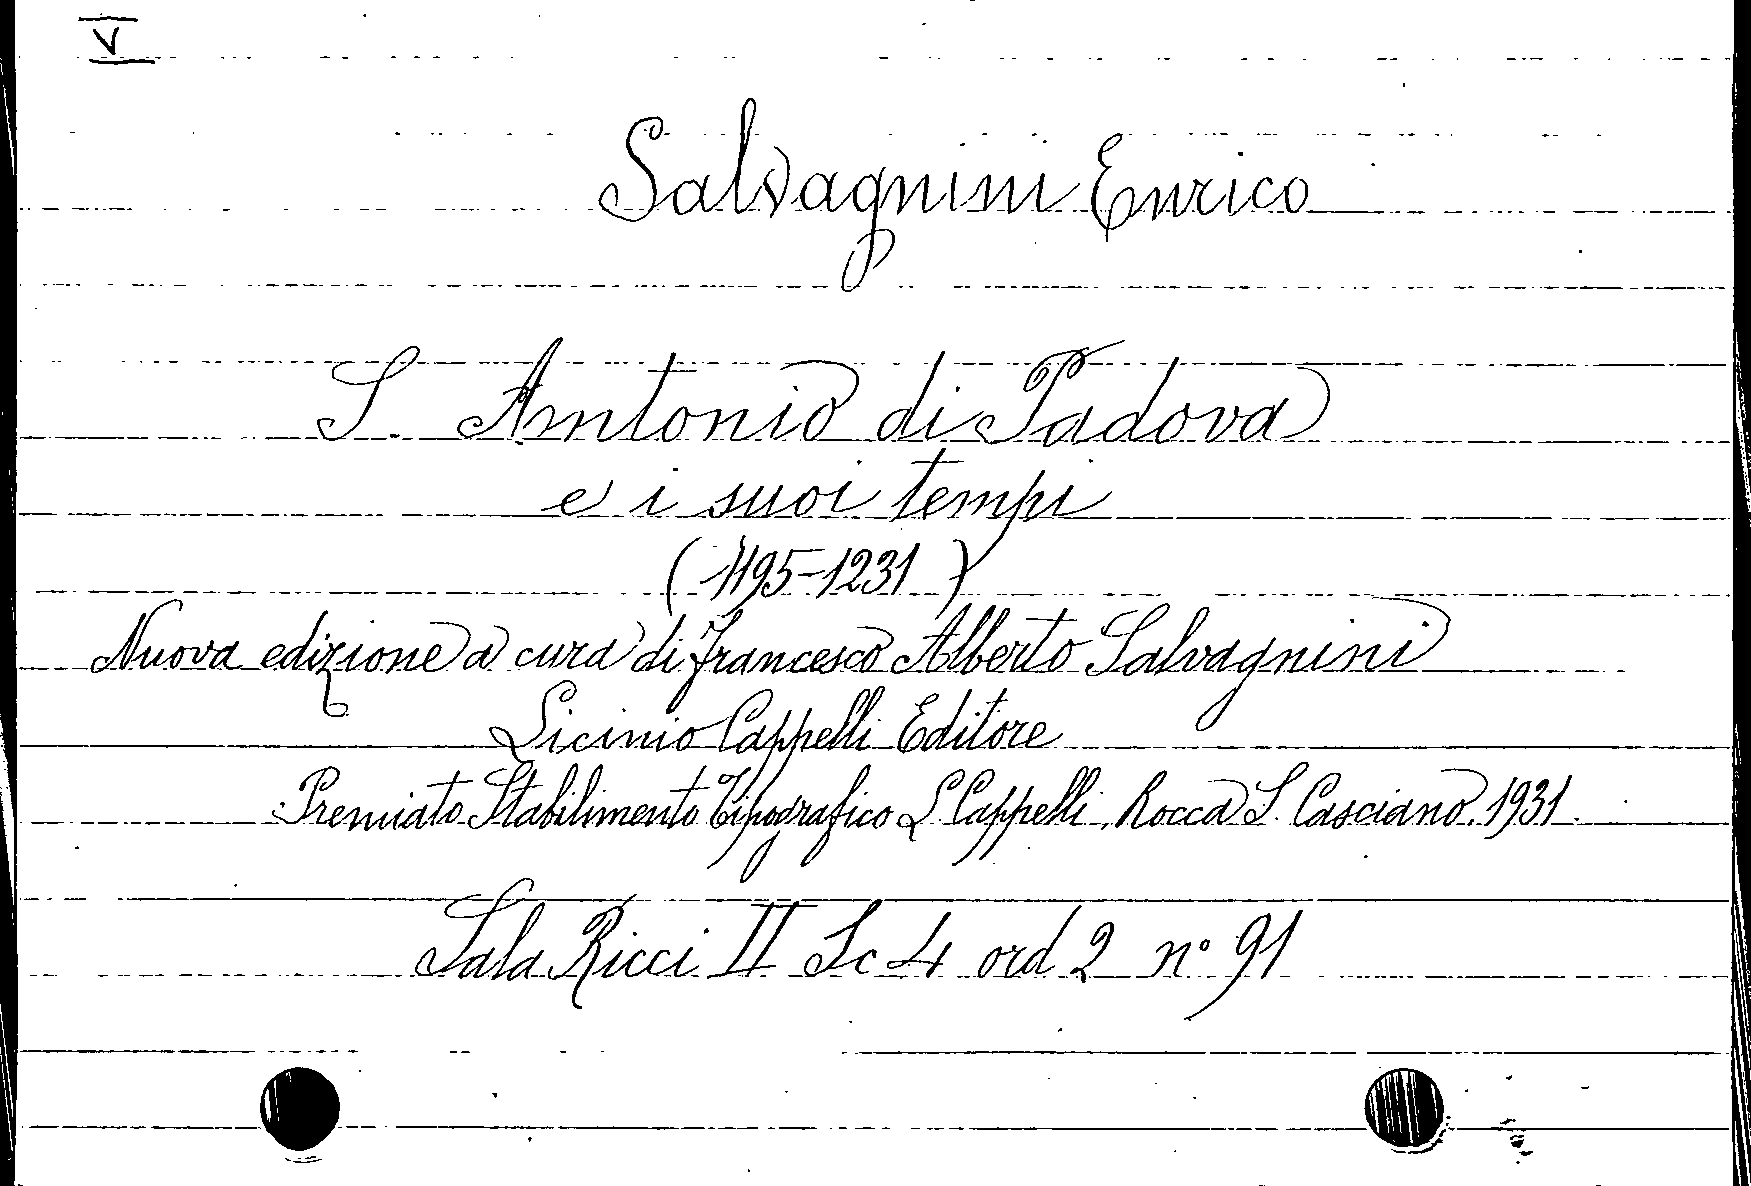 V
Salvagnini Enrico
S. Antonio di Padova
e i suoi tempi
(1195-1231)
Nuova edizione a cura di Francesco Alberto Salvagnini
Licinio Cappelli Editore
Premiato Stabilimento Tipografico L. Cappelli. Rocca S. Casciano. 1931.
Sala Ricci II Sc 4 ord 2 n° 91